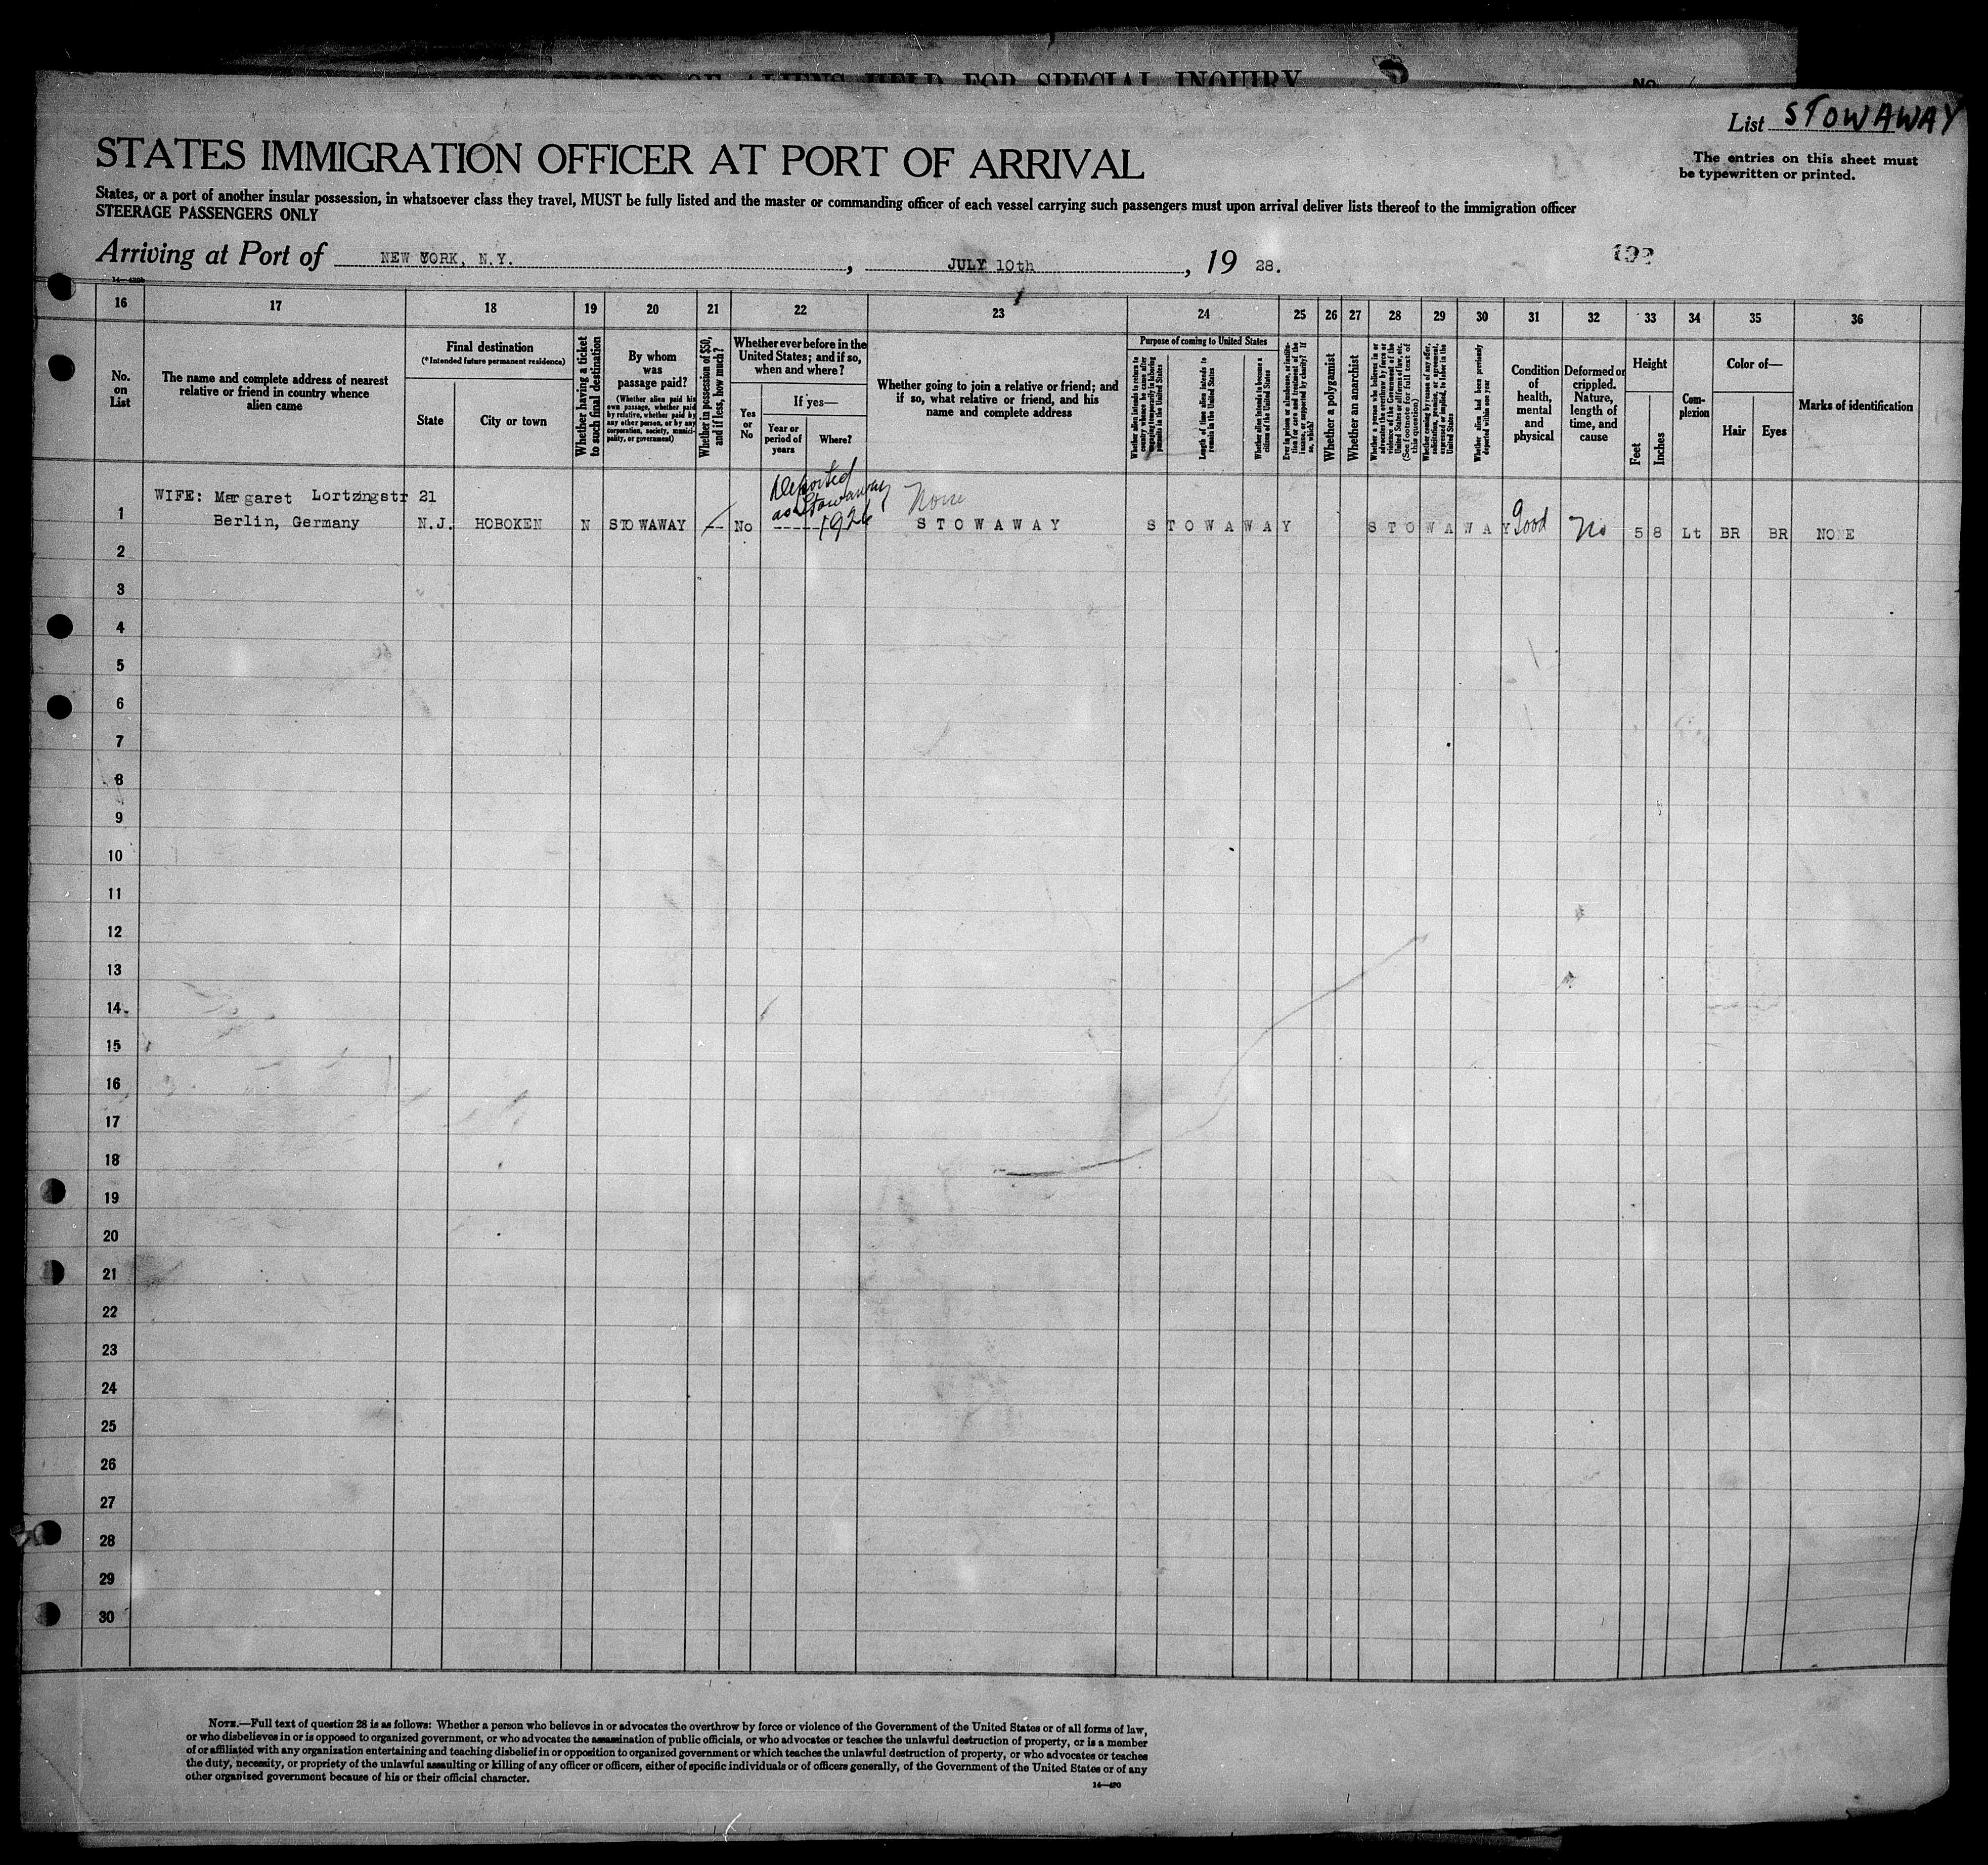 RECORD OF ALIENS HELD FOR SPECIAL INQUIRY
No.
List STOWAWAY
STATES IMMIGRATION OFFICER AT PORT OF ARRIVAL
The entries on this sheet must
be typewritten or printed.
States, or a port of another insular possession, in whatsoever class they travel, MUST be fully listed and the master or commanding officer of each vessel carrying such passengers must upon arrival deliver lists thereof to the immigration officer
STEERAGE PASSENGERS ONLY
Arriving at Port of NEW YORK, N.Y., JULY 10th, 19 28.
192
16 17 18 19 20 21 22 23 24 25 26 27 28 29 30 31 32 33 34 35 36
No. on List
The name and complete address of nearest
relative or friend in country whence
alien came
Final destination
(*Intended future permanent residence)
State
City or town
Whether having a ticket
to such final destination
By whom
was
passage paid?
(Whether alien paid his
own passage, whether paid
by relative, whether paid by
any other person, or by any
corporation, society, munici-
pality, or government)
Whether in possession of $50,
and if less, how much?
Whether ever before in the
United States; and if so,
when and where?
Yes
or
No
If yes—
Year or
period of
years
Where?
Whether going to join a relative or friend; and
if so, what relative or friend, and his
name and complete address
Purpose of coming to United States
Whether alien intends to return to
country whence he came after
engaging temporarily in laboring
pursuits in the United States
Length of time alien intends to
remain in the United States
Whether alien intends to become a
citizen of the United States
Ever in prison or almshouse, or institu-
tion for care and treatment of the
insane, or supported by charity? If
so, which?
Whether a polygamist
Whether an anarchist
Whether a person who believes in or
advocates the overthrow by force or
violence of the Government of the
United States or all forms of law, etc.
(See footnote for full text of
this question)
Whether coming by reason of any offer,
solicitation, promise, or agreement,
expressed or implied, to labor in the
United States
Whether alien had been previously
deported within one year
Condition
of
health,
mental
and
physical
Deformed or
crippled.
Nature,
length of
time, and
cause
Height
Feet
Inches
Com-
plexion
Color of—
Hair
Eyes
Marks of identification
WIFE: Margaret Lortzingstr 21
Deported
as Stowaway
1926
None
1 Berlin, Germany N.J. HOBOKEN N STOWAWAY -- No ----- STOWAWAY STOWAWAY STOWAWAY Good No 5 8 Lt BR BR NONE
2
3
4
5
6
7
8
9
10
11
12
13
14
15
16
17
18
19
20
21
22
23
24
25
26
27
28
29
30
NOTE.—Full text of question 28 is as follows: Whether a person who believes in or advocates the overthrow by force or violence of the Government of the United States or of all forms of law,
or who disbelieves in or is opposed to organized government, or who advocates the assassination of public officials, or who advocates or teaches the unlawful destruction of property, or is a member
of or affiliated with any organization entertaining and teaching disbelief in or opposition to organized government or which teaches the unlawful destruction of property, or who advocates or teaches
the duty, necessity, or propriety of the unlawful assaulting or killing of any officer or officers, either of specific individuals or of officers generally, of the Government of the United States or of any
other organized government because of his or their official character.
14—420